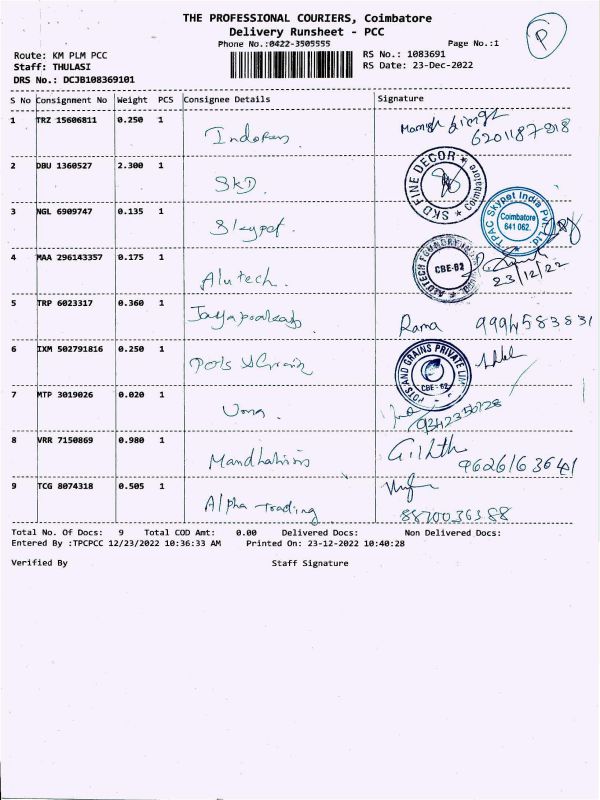 THE PROFESSIONAL COURIERS, Coimbatore
Delivery Runsheet - PCC
Phone No.:0422-3505555
Page No.:1
P
Route: KM PLM PCC
RS No.: 1083691
Staff: THULASI
RS Date: 23-Dec-2022
DRS No.: DCJB108369101
S No Consignment No Weight PCS Consignee Details Signature
1 TRZ 15606811 0.250 1
6201187818
2 DBU 1360527 2.300 1 SKD
SKD FINE DECOR * Coimbatore *
3 NGL 6909747 0.135 1
TPAC Skypet India Pvt. Ltd.
Coimbatore
641 062.
4 MAA 296143357 0.175 1 Alutech.
CBE-62
23/12/22
5 TRP 6023317 0.360 1 Rama 9994583831
6 IXM 502791816 0.250 1 Pots & Grain
POTS AND GRAINS PRIVATE LIM
CBE - 62
7 MTP 3019026 0.020 1 Uma.
9342350728
8 VRR 7150869 0.980 1
9626163641
9 TCG 8074318 0.505 1 Alpha Trading
8870036388
Total No. Of Docs: 9 Total COD Amt: 0.00 Delivered Docs: Non Delivered Docs:
Entered By :TPCPCC 12/23/2022 10:36:33 AM Printed On: 23-12-2022 10:40:28
Verified By Staff Signature